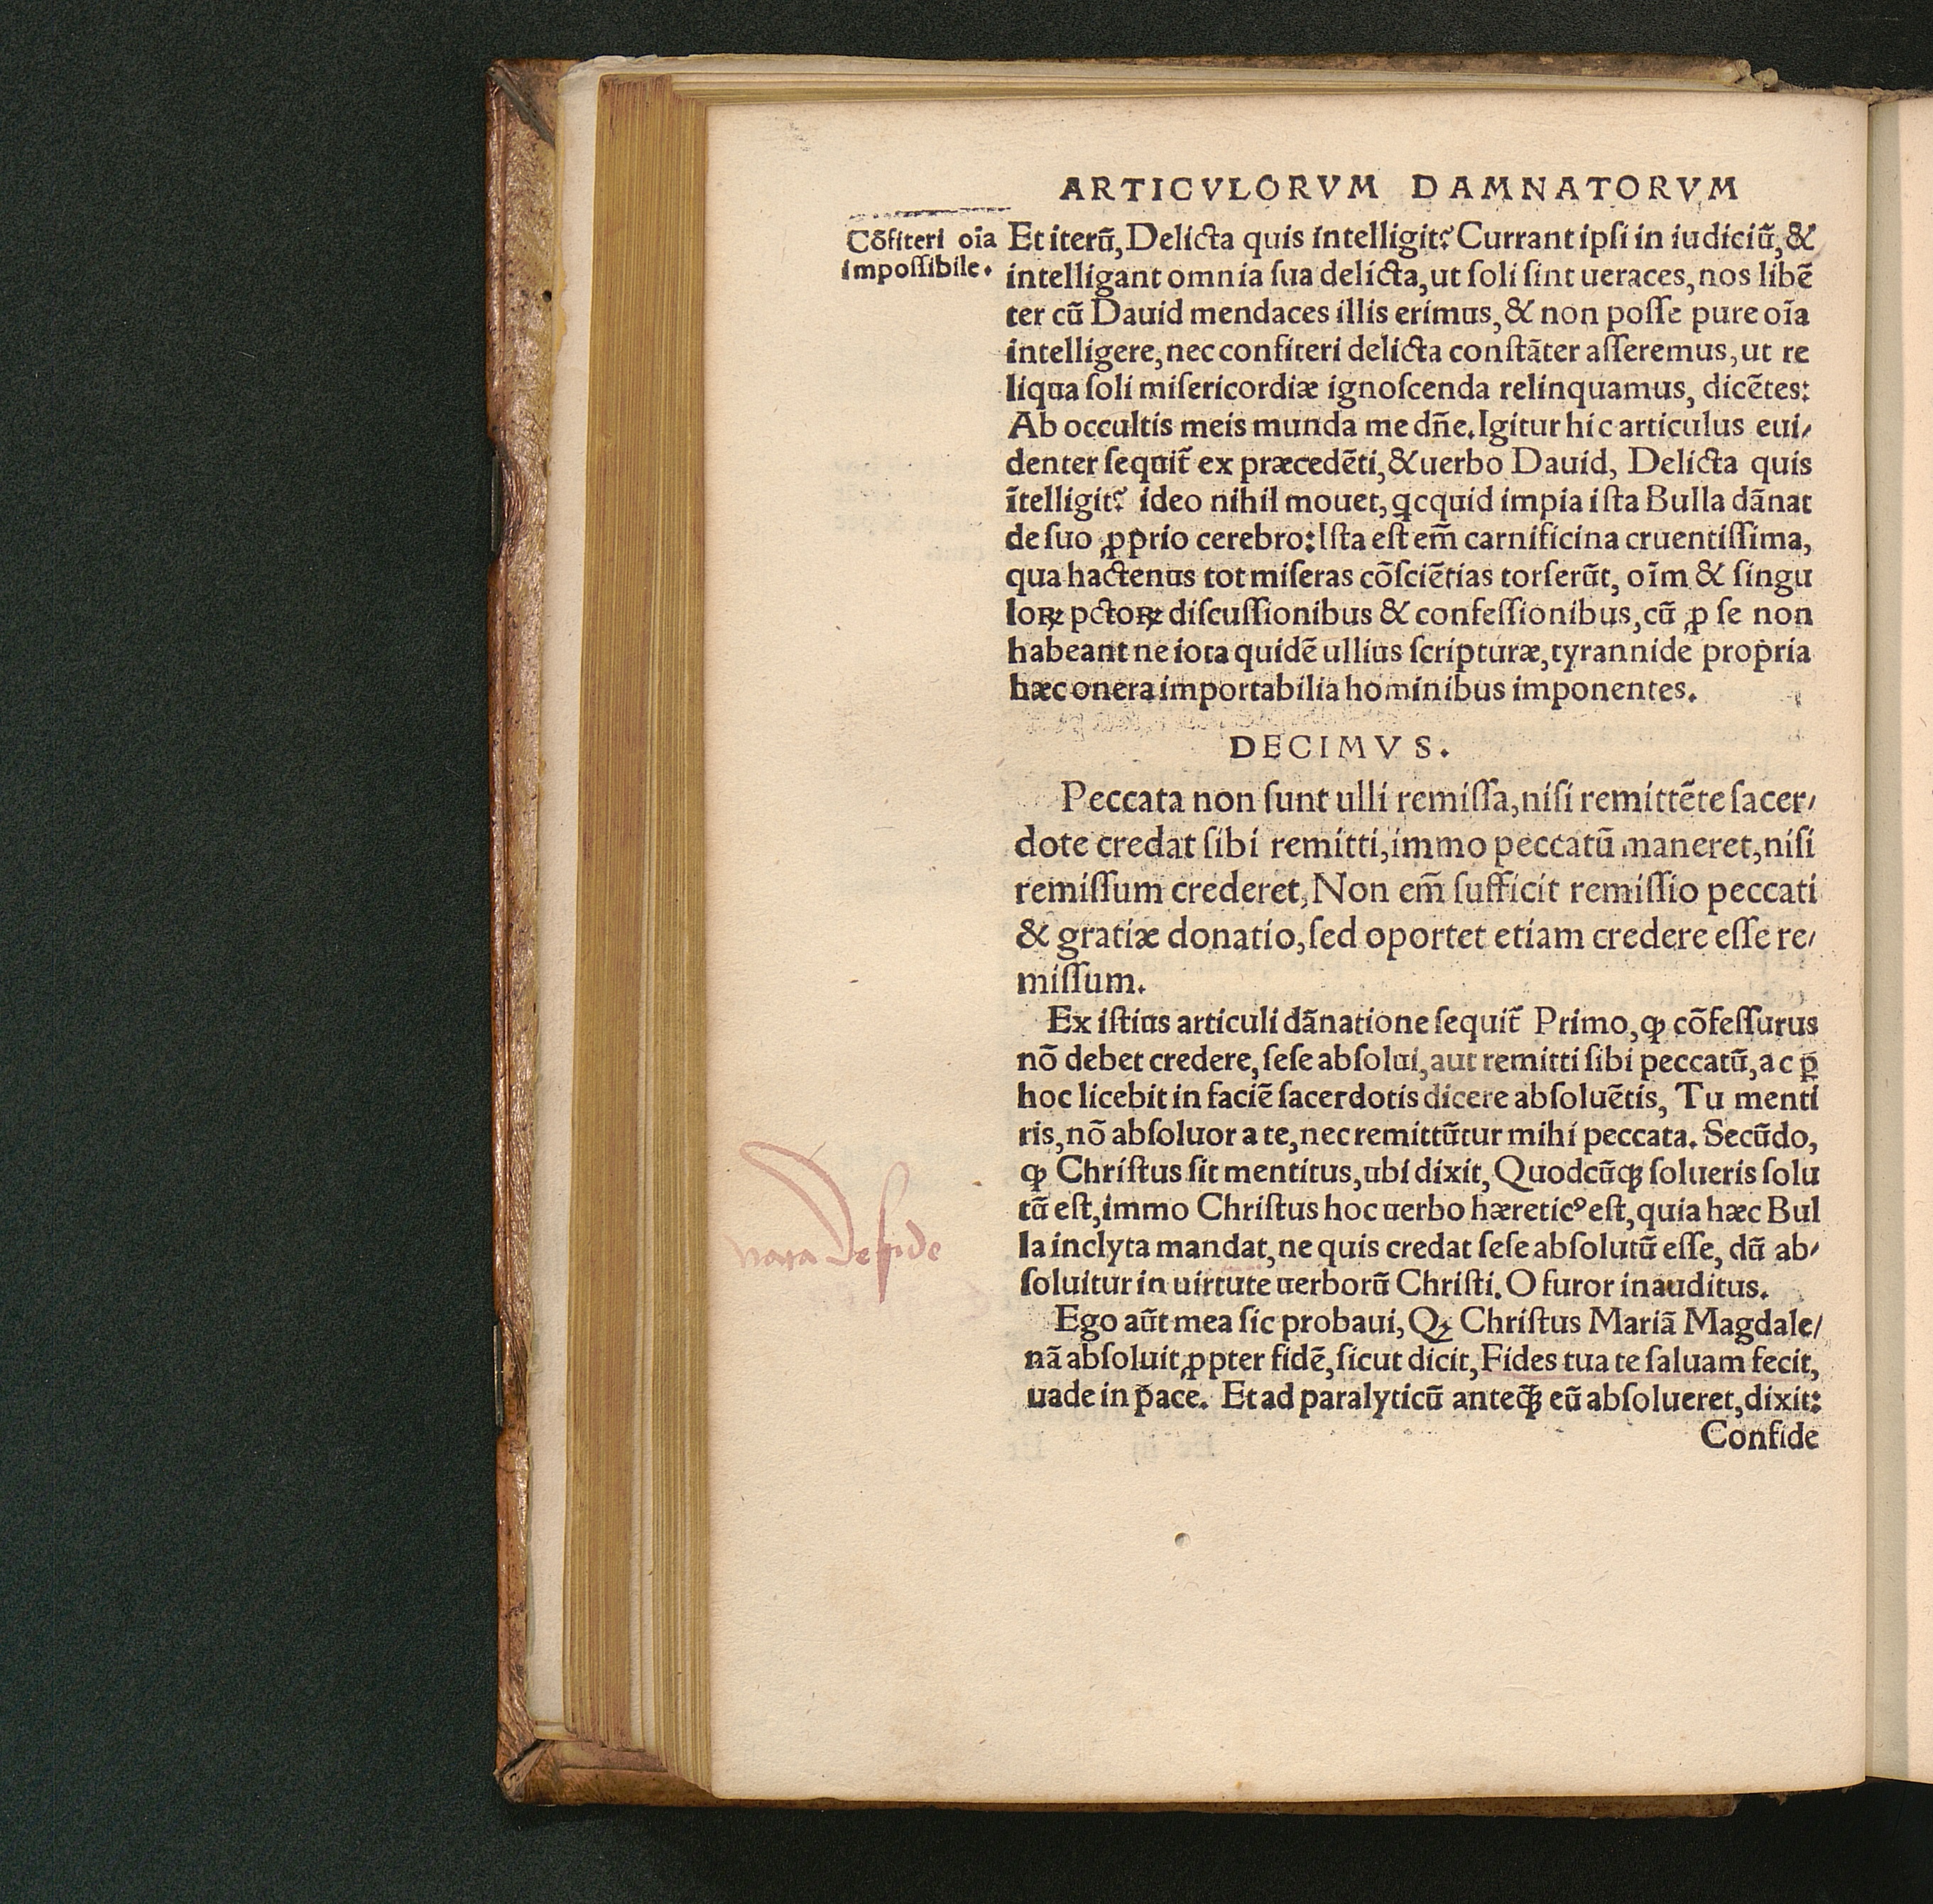 ARTICVLORVM DAMNATORVM
Cõfiteri oĩa
impoſſibile.
Et iterũ, Delicta quis intelligit? Currant ipſi in iudiciũ, &
intelligant omnia ſua delicta, ut ſoli ſint ueraces, nos libẽ
ter cũ Dauid mendaces illis erimus, & non poſſe pure oĩa
intelligere, nec confiteri delicta conſtãter aſſeremus, ut re
liqua ſoli miſericordiæ ignoſcenda relinquamus, dicẽtes:
Ab occultis meis munda me dñe. Igitur hic articulus eui/
denter ſequit̃ ex præcedẽti, & uerbo Dauid, Delicta quis
ĩtelligit? ideo nihil mouet, ꝗcquid impia iſta Bulla dãnat
de ſuo ꝓprio cerebro: Iſta eſt em̃ carnificina cruentiſſima,
qua hactenus tot miſeras cõſciẽtias torſerũt, oĩm & ſingu
loꝝ pctoꝝ diſcuſſionibus & confeſſionibus, cũ ꝓ ſe non
habeant ne iota quidẽ ullius ſcripturæ, tyrannide propria
hæc onera importabilia hominibus imponentes.
DECIMVS.
Peccata non ſunt ulli remiſſa, niſi remittẽte ſacer/
dote credat ſibi remitti, immo peccatũ maneret, niſi
remiſſum crederet, Non em̃ ſufficit remiſſio peccati
& gratiæ donatio, ſed oportet etiam credere eſſe re/
miſſum.
Ex iſtius articuli dãnatione ſequit̃ Primo, ꝙ cõfeſſurus
nõ debet credere, ſeſe abſolui, aut remitti ſibi peccatũ, ac ꝑ
hoc licebit in faciẽ ſacerdotis dicere abſoluẽtis, Tu menti
ris, nõ abſoluor a te, nec remittũtur mihi peccata. Secũdo,
ꝙ Chriſtus ſit mentitus, ubi dixit, Quodcũqꝫ ſolueris ſolu
tũ eſt, immo Chriſtus hoc uerbo hæreticꝰ eſt, quia hæc Bul
la inclyta mandat, ne quis credat ſeſe abſolutũ eſſe, dũ ab/
ſoluitur in uirtute uerborũ Chriſti. O furor inauditus.
Ego aũt mea ſic probaui, Qꝫ Chriſtus Mariã Magdale/
nã abſoluit ꝓpter fidẽ, ſicut dicit, Fides tua te ſaluam fecit,
uade in pace. Et ad paralyticũ anteqꝫ̃ eũ abſolueret, dixit:
Confide
nota de fide